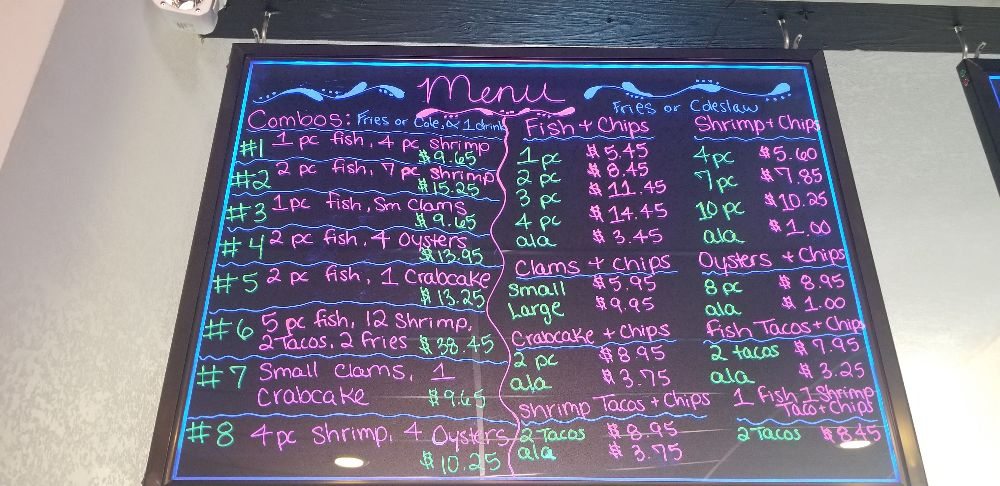 Menu
Fries or Coleslaw
Combos: Fries or Cole, & 1 drink
#1 1 pc fish, 4 pc shrimp
$9.65
#2 2 pc fish, 7 pc shrimp
$15.25
#3 1pc fish, Sm Clams
$9.65
#4 2 pc fish, 4 Oysters
$13.95
#5 2 pc fish, 1 Crabcake
$13.25
#6 5 pc fish, 12 Shrimp,
2 Tacos, 2 Fries $38.45
#7 Small Clams, 1
Crabcake $9.65
#8 4pc Shrimp, 4 Oysters
$10.25
Fish + Chips
1 pc $5.45
2 pc $8.45
3 pc $11.45
4 pc $14.45
ala $3.45
Clams + Chips
Small $5.95
Large $9.95
Crabcake + Chips
2 pc $8.95
ala $3.75
Shrimp Tacos + Chips
2 Tacos $8.95
ala $3.75
Shrimp + Chips
4pc $5.60
7pc $7.85
10 pc $10.25
ala $1.00
Oysters + Chips
8 pc $8.95
ala $1.00
Fish Tacos + Chips
2 tacos $7.95
ala $3.25
1 Fish 1 Shrimp
Taco + Chips
2 Tacos $8.45